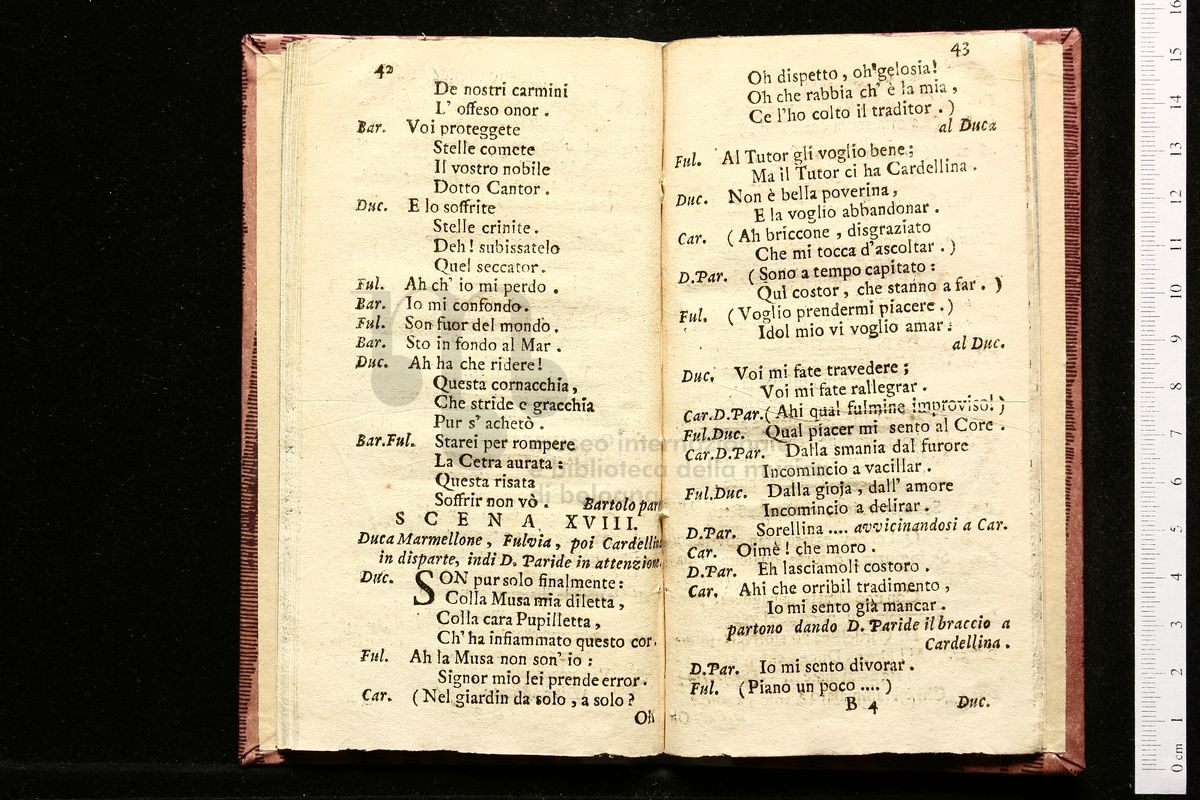 42
De nostri carmini
L' offeso onor .
Bar. Voi proteggete
Stelle comete
Il vostro nobile
Dotto Cantor .
Duc. E lo soffrite
Stelle crinite .
Deh ! subissatelo
Quel seccator .
Ful. Ah ch' io mi perdo .
Bar. Io mi confondo .
Ful. Son fuor del mondo .
Bar. Sto in fondo al Mar .
Duc. Ah ha che ridere !
Questa cornacchia ,
Che stride e gracchia
Pur s' achetò .
Bar.Ful. Starei per rompere
La Cetra aurata :
Questa risata
Soffrir non vò . Bartolo part
SCENA XVIII.
Duca Marmellone , Fulvia , poi Cardellina
in disparte, indi D. Paride in attenzione.
Duc. SON pur solo finalmente :
Colla Musa mia diletta ,
Colla cara Pupilletta ,
Ch' ha infiammato questo cor .
Ful. Ah la Musa non son' io :
Signor mio lei prende error .
Car. ( Nel giardin da solo , a solo ?
Oh
43
Oh dispetto , oh gelosia !
Oh che rabbia ch' è la mia ,
Ce l'ho colto il traditor . )
al Duca
Ful. Al Tutor gli voglio bene ;
Ma il Tutor ci ha Cardellina .
Duc. Non è bella poverina ,
E la voglio abbandonar .
Car. ( Ah briccone , disgraziato
Che mi tocca d'ascoltar . )
D.Par. ( Sono a tempo capitato :
Qui costor , che stanno a far . )
Ful. ( Voglio prendermi piacere . )
Idol mio vi voglio amar :
al Duc.
Duc. Voi mi fate travedere ;
Voi mi fate rallegrar .
Car.D.Par. ( Ahi qual fulmine improviso! )
Ful.Duc. Qual piacer mi sento al Core .
Car.D.Par. Dalla smania dal furore
Incomincio a vacillar .
Ful.Duc. Dalla gioja , dall' amore
Incomincio a delirar .
D.Par. Sorellina .... avvicinandosi a Car.
Car. Oimè ! che moro .
D.Par. Eh lasciamoli costoro .
Car. Ahi che orribil tradimento ,
Io mi sento già mancar .
partono dando D. Paride il braccio a
Cardellina .
D.Par. Io mi sento divorar .
Ful. ( Piano un poco .... )
B 4 Duc.
0 cm 1 2 3 4 5 6 7 8 9 10 11 12 13 14 15 16